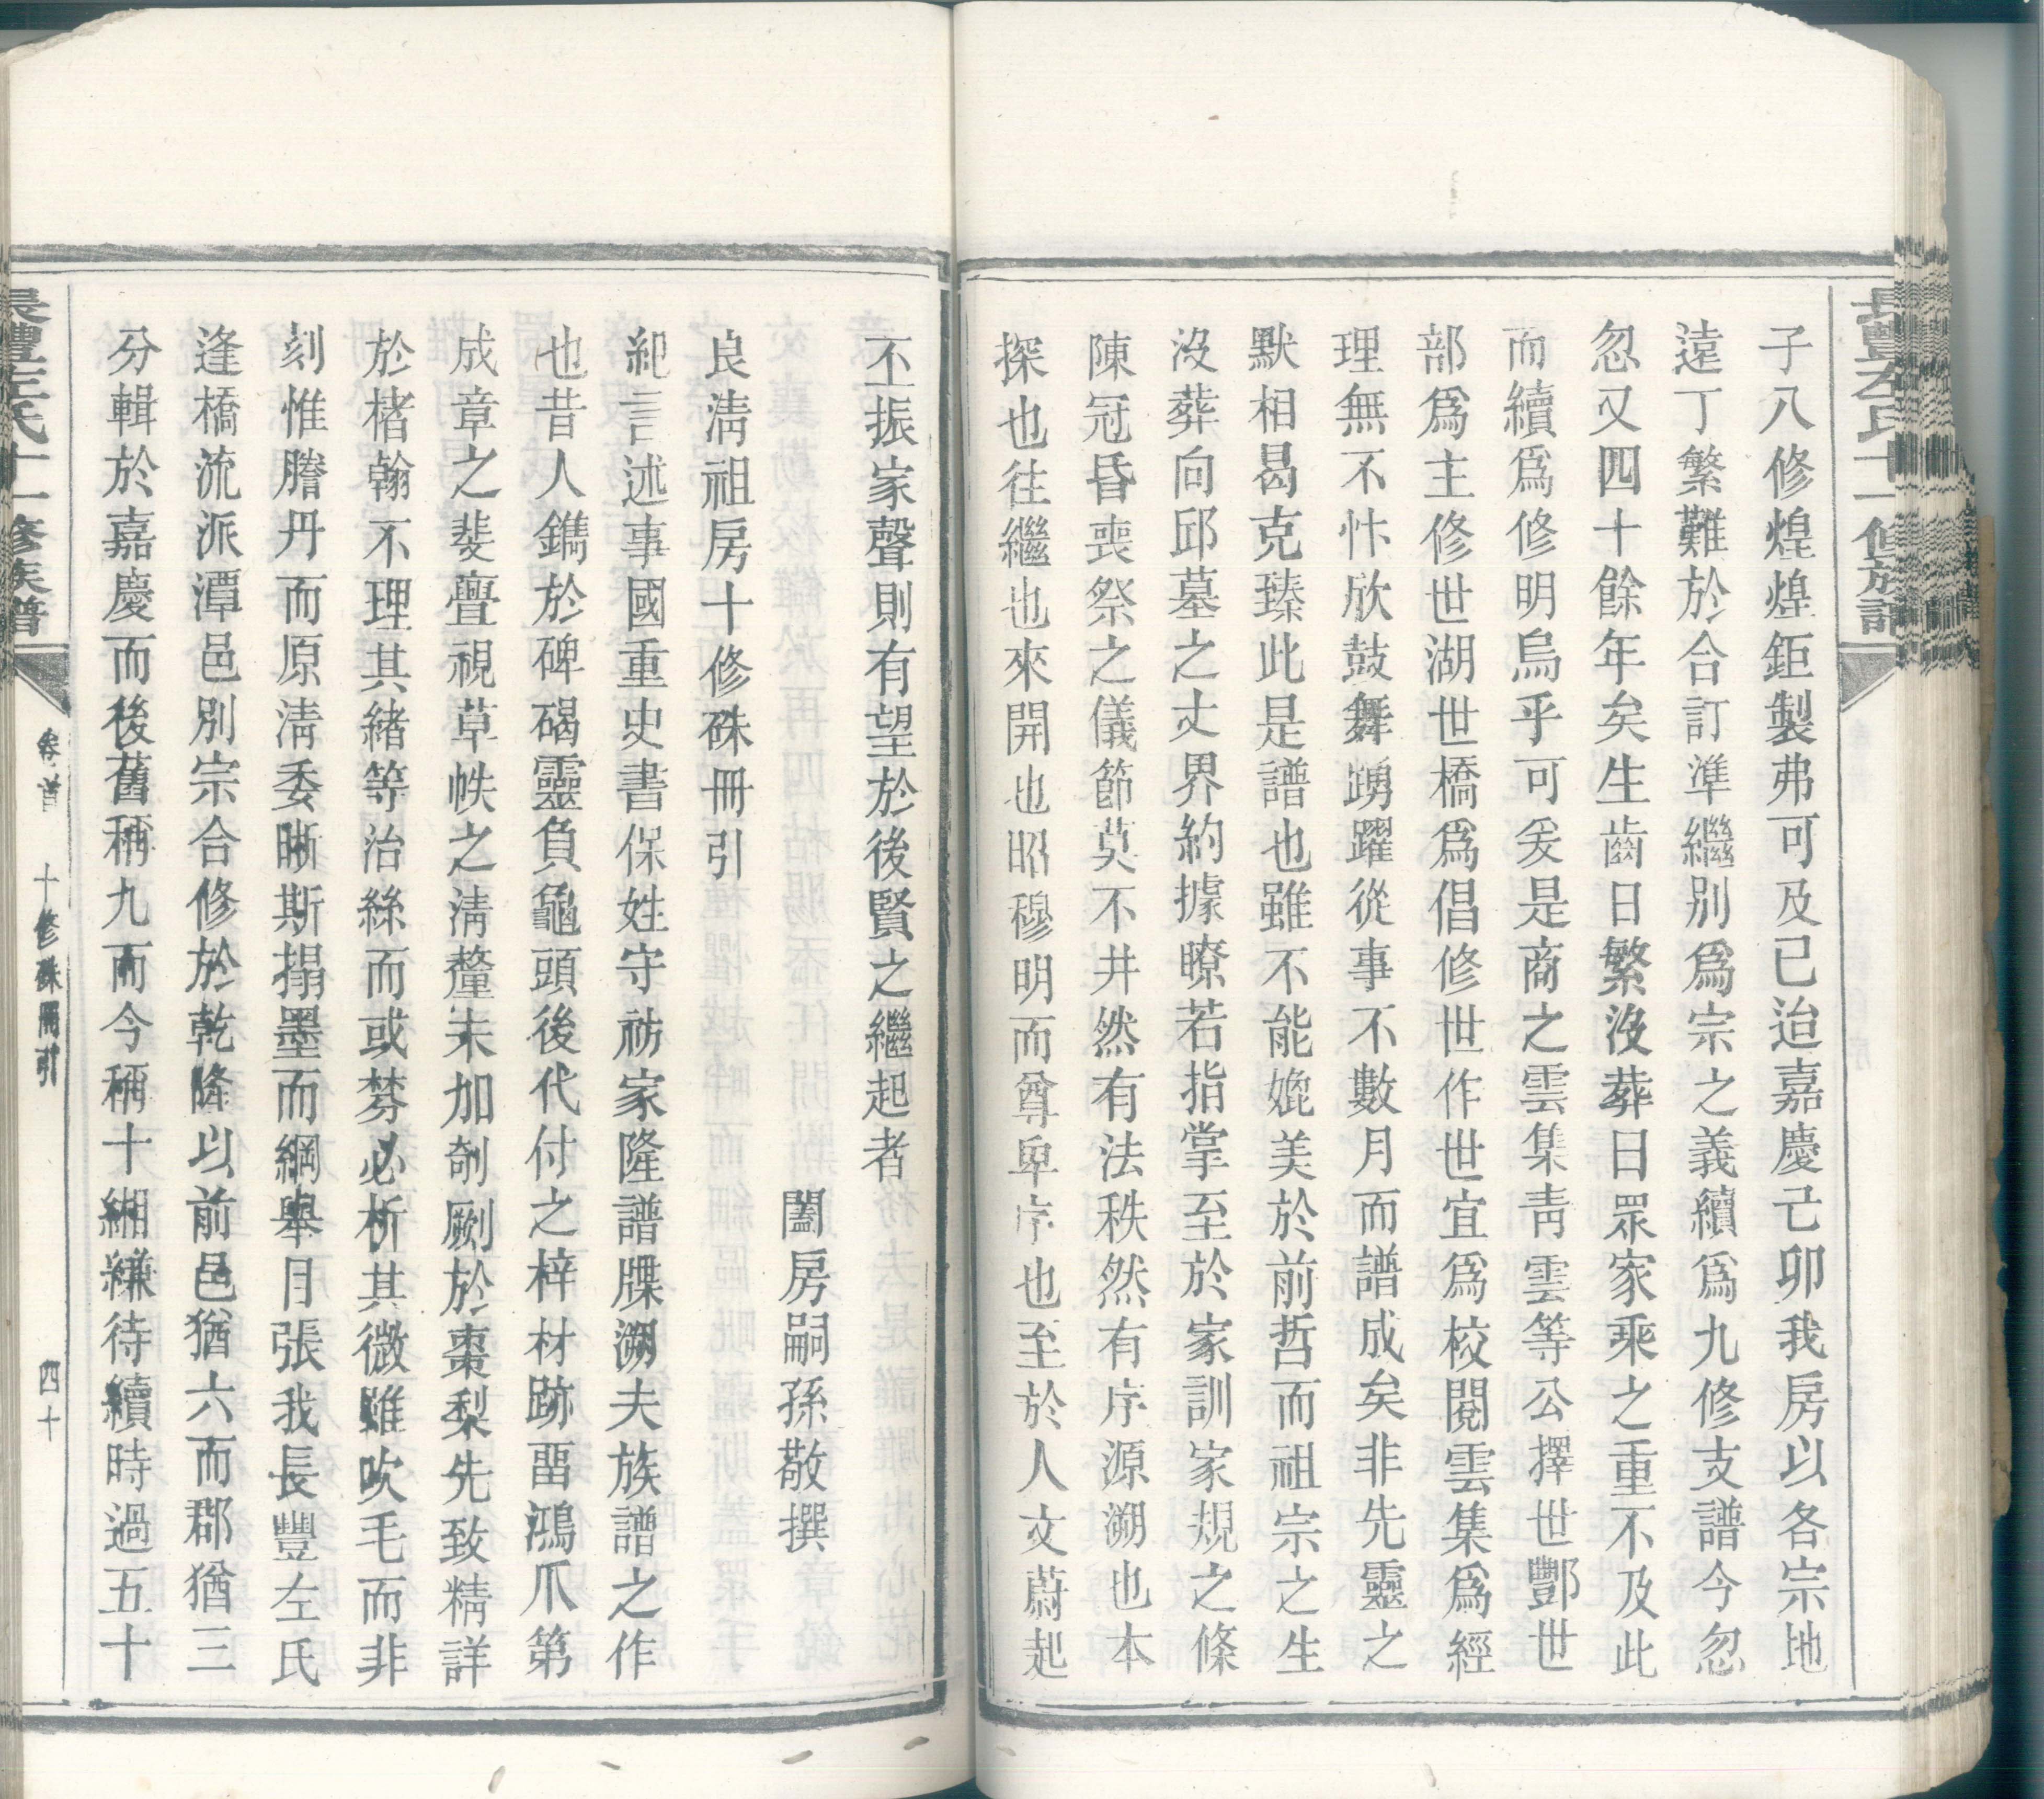 長豐左氏十一修族譜
子八修煌煌鉅製弗可及已迨嘉慶己卯我房以各宗地
遠丁繁難於合訂準繼別為宗之義續為九修支譜今忽
忽又四十餘年矣生齒日繁沒葬日眾家乘之重不及此
而續為修明烏乎可爰是商之雲集青雲等公擇世酆世
部為主修世湖世橋為倡修世作世宜為校閱雲集為經
理無不忭欣鼓舞踴躍從事不數月而譜成矣非先靈之
默相曷克臻此是譜也雖不能媲美於前哲而祖宗之生
沒葬向邱墓之丈界約據瞭若指掌至於家訓家規之條
陳冠昏喪祭之儀節莫不井然有法秩然有序源溯也本
探也往繼也來開也昭穆明而尊卑序也至於人文蔚起
丕振家聲則有望於後賢之繼起者
闔房嗣孫敬撰
良淸祖房十修硃冊引
紀言述事國重史書保姓守祊家隆譜牒溯夫族譜之作
也昔人鐫於碑碣靈負龜頭後代付之梓材跡畱鴻爪第
成章之斐亹視草帙之淸釐未加剞劂於棗梨先致精詳
於楮翰不理其緒等治絲而或棼必析其微雖吹毛而非
刻惟謄丹而原淸委晰斯搨墨而綱舉目張我長豐左氏
逢橋流派潭邑別宗合修於乾隆以前邑猶六而郡猶三
分輯於嘉慶而後舊稱九而今稱十緗縑待續時過五十
長豐左氏十一修族譜
卷首
十修硃冊引
四十